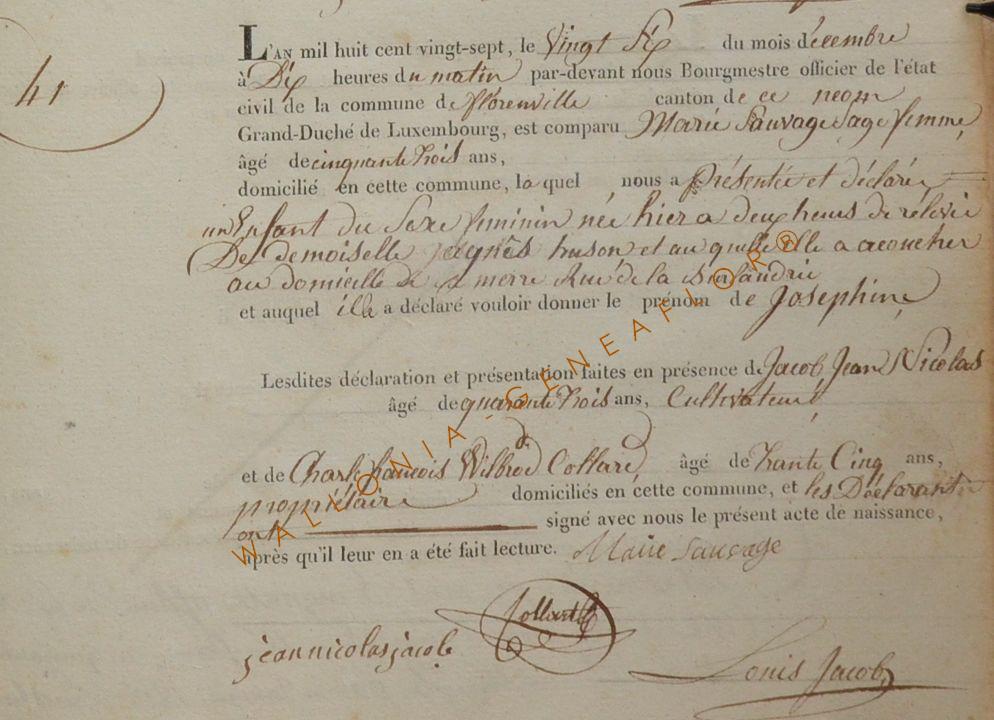 41
L'AN mil huit cent vingt-sept, le Vingt Six du mois décembre
à Dix heures du matin par-devant nous Bourgmestre officier de l'état
civil de la commune de florenville canton de ce nom
Grand-Duché de Luxembourg, est comparu Marie Sauvage Sage femme
âgé de cinquante trois ans,
domicilié en cette commune, la quel nous a présentée et déclaré
un Enfant du Sexe feminin née hier a deux heurs de rélevée
De demoiselle agnès huson et au quelle elle a acoucher
au domicille de merre Rue de la
et auquel ille a déclaré vouloir donner le prénom de Josephine
Lesdites déclaration et présentation faites en présence de Jacob Jean Nicolas
âgé de quarante trois ans, Cultivateur
et de Charle francois Wilbrod Collard, âgé de trante Cinq ans,
propriétaire domiciliés en cette commune, et les Déclarants
ont signé avec nous le présent acte de naissance,
après qu'il leur en a été fait lecture. Marie Sauvage
Collard
jean nicolas jacob
Louis Jacob
WALLONIA-GENEAFLOR®